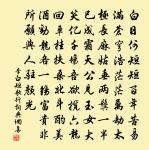 白日何短短百年苦易
滿蒼穹浩茫茫萬劫太
極長麻姑垂兩鬢一半
已成霜天公見玉女大
笑億千場吾欲攬六龍
回車挂扶桑北斗酌美
酒勸龍各一觴富貴非
所願與人駐顏光
李白短歌行